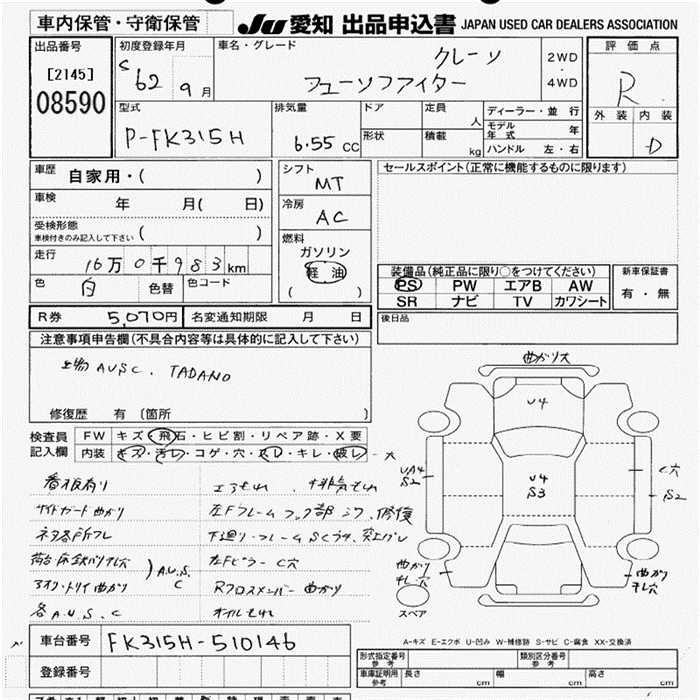 車内保管・守衛保管
JU 愛知 出品申込書 JAPAN USED CAR DEALERS ASSOCIATION
出品番号
[2145]
08590
初度登録年月
S 62 9 月
車名・グレード
クレーン
フューソファイター
2WD
4WD
評価点
R
外装 内装
D
型式
P-FK315H
排気量
6.55 CC
ドア
形状
定員
人
積載
kg
ディーラー・並行
モデル年式 年
ハンドル 左・右
車歴 自家用・( )
車検 年 月( 日)
受検形態
車検付きのみ記入して下さい ( )
走行
16万0千983km
色 白 色替 色コード
シフト
MT
冷房
AC
燃料
ガソリン
軽油
( )
セールスポイント(正常に機能するものに限ります)
装備品(純正品に限り○をつけてください)
PS PW エアB AW
SR ナビ TV カワシート
新車保証書
有・無
R券 5,070円 名変通知期限 月 日
後日品
注意事項申告欄(不具合内容等は具体的に記入して下さい)
上物 AUSC. TADANO
修復歴 有 [箇所 ]
検査員
記入欄
FW キズ・飛石・ヒビ割・リペア跡・X要
内装 キズ・汚レ・コゲ・穴・スレ・キレ・破レ - 大
看板有り
エアもれ、排気もれ
サイドガード曲がり
左Fフレームフック部シワ、修復
ネタ各所フレ
下廻り・フレームSCウチ、突上バレ
荷台床鉄バリチレ穴 ) A.U.S.C
左Fピラー C穴
アオク・トリイ曲がり
Rクロスメンバー 曲がり
各A.U.S.C
オイルもれ
曲がり大
U4
U4
S3
UA4
S2
C穴
S2
曲がり
チレ穴
曲がり
チレ穴
スペア
A-キズ E-エクボ U-凹み W-補修跡 S-サビ C-腐食 XX-交換済
車台番号 FK315H-510146
登録番号
形式指定番号
参考
類別区分番号
参考
車庫証明用
参考
長さ cm 幅 cm 高さ cm